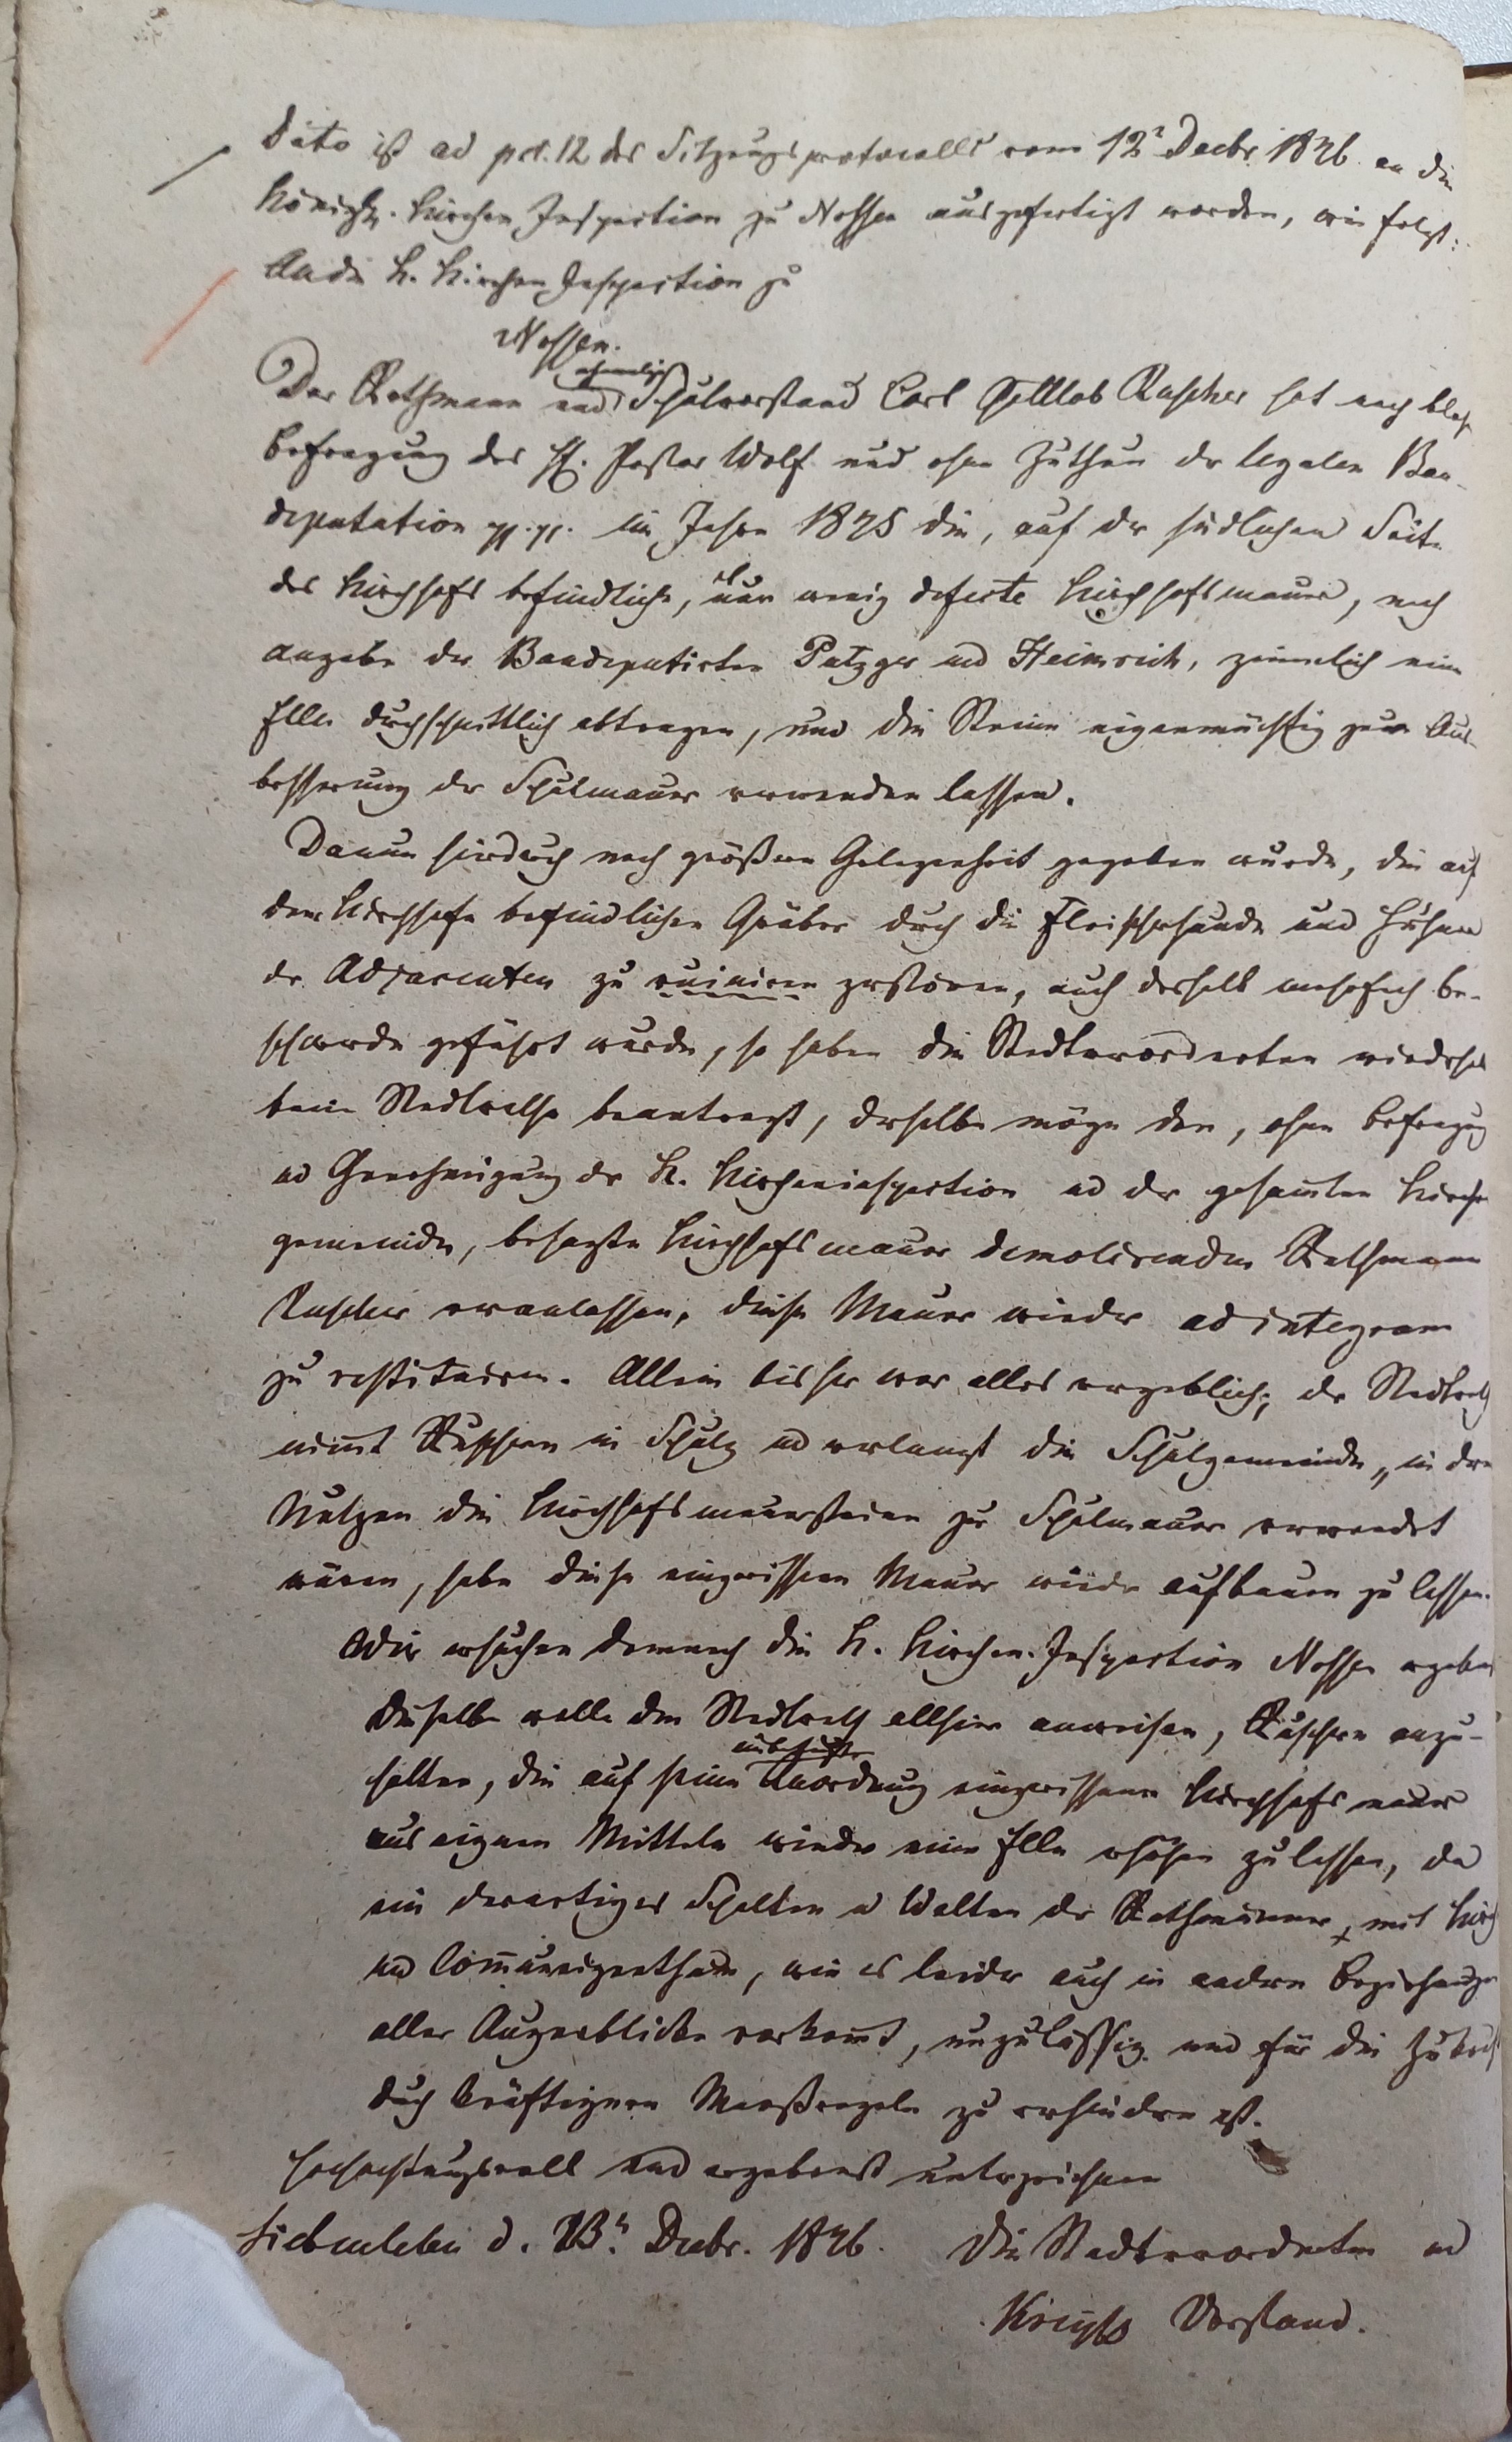 Dato ist ad pct. 12 des Sitzungsprotocolls vom 12r Decbr. 1846 an die
Königl. Kirchen Inspection zu Nossen ausgefertigt worden, wie folgt:
An die K. Kirchen Inspection zu
Nossen.
Der Rathmann und Schulvorstand Carl Gottlob Ruscher hat nach blos
Befragung des H. Pastor Wolf und ohne Zuthun der legalen Bau-
deputation pp. pp. im Jahre 1845 die, auf der südlichen Seite
des Kirchhofs befindliche, nur wenig defecte Kirchhofsmauer, nach
Angabe der Baudeputirten Patzger und Heinrich, ziemlich eine
Elle durchschnittlich abtragen, und die Steine eigenmächtig zur Aus-
besserung der Schulmauer verwenden lassen.
Da nun hierdurch noch größere Gelegenheit gegeben wurde, die auf
dem Kirchhofe befindlichen Gräber durch die Fleischerhunde und Hühner
der Adjacenten zu ruiniren zerstören, auch deshalb mehrfach Be-
schwerde geführt wurde, so haben die Stadtverordneten wiederholt
beim Stadtrathe beantragt, derselbe möge den, ohne Befragung
und Genehmigung der K. Kircheninspection und der gesamten Kirch
gemeinde, besagte Kirchhofsmauer demolirenden Rathmann
Ruscher veranlassen, diese Mauer wieder ad integram
zu restituiren. Allein bisher war alles vergeblich; der Stadtrath
nimt Ruschern in Schutz und verlangt die Schulgemeinde, „in deren
Nutzen die Kirchhofsmauersteine zur Schulmauer verwendet
wären, habe diese eingerissene Mauer wieder aufbauen zu lassen.
Wir ersuchen demnach die K. Kirchen-Inspection Nossen ergebenst
dieselbe wolle den Stadtrath allhier anweisen, Ruschern anzu-
halten, die auf seine unbefugte Anordnung eingerissene Kirchhofsmauer
aus eignen Mitteln wieder eine Elle erhöhen zu lassen, da
ein derartiges Schalten u Walten der Rathmänner, mit Kirch
und Comuneigenthum, wie es leider auch in andern Beziehungen
aller Augenblicke vorkomt, unzulässig und für die Zukunft
durch kräftigere Maaßregeln zu verhindern ist.
Hochachtungsvoll und ergebenst unterzeichnen
Siebenlehn d. 13n Decbr. 1846. Die Stadtverordneten und
Vorstand.